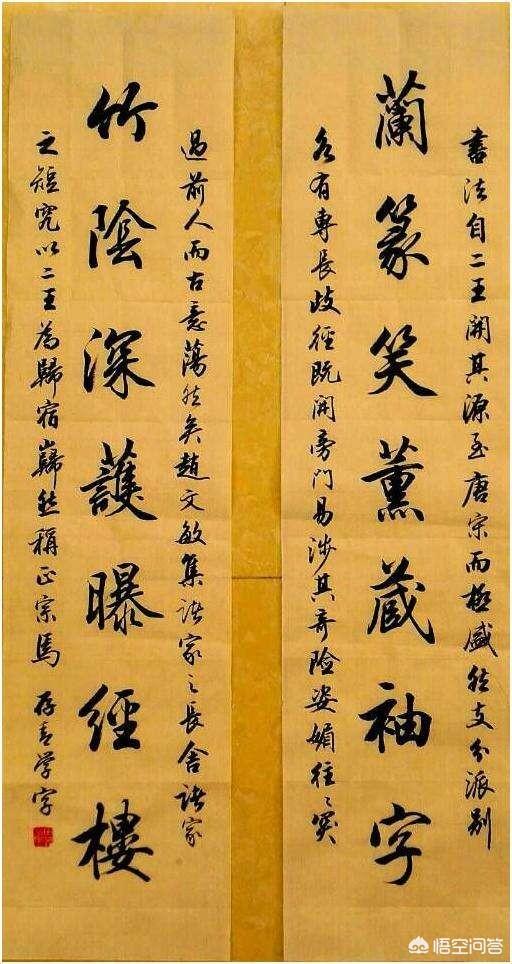 書法自二王開其源至唐宋而極盛然支分派别
蘭篆笑薰蔵袖字
各有專長歧徑既開旁門易涉其奇險姿媚往〻突
過前人而古意蕩然矣趙文敏集諸家之長舍諸家
竹陰深護曝經樓
之短究以二王為歸宿巋然稱正宗焉 存青學字
悟空问答